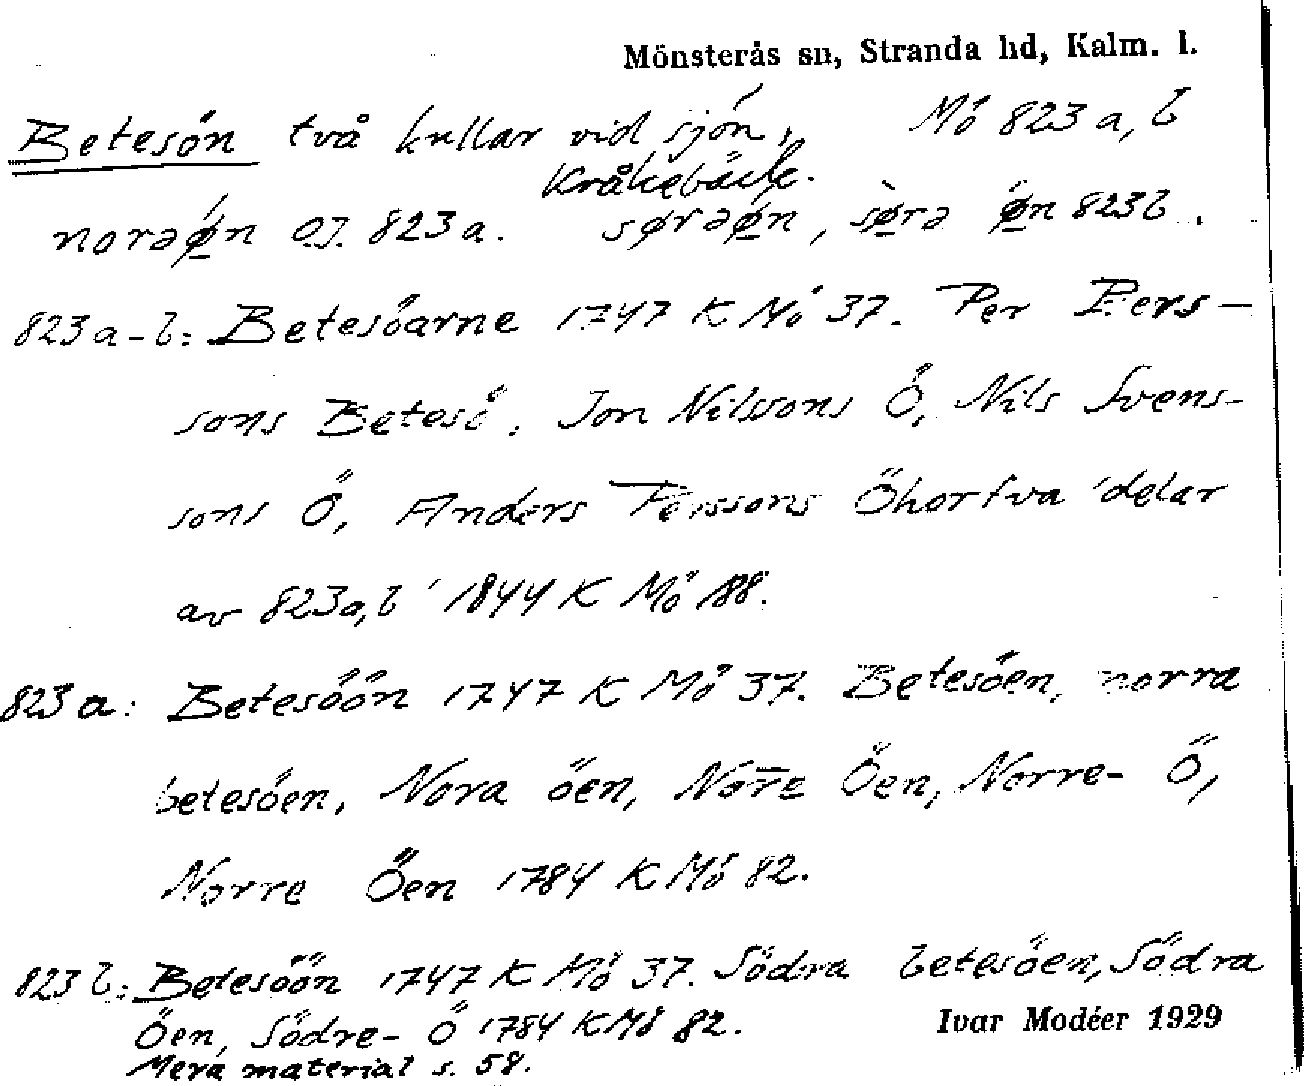 Mönsterås sn, Stranda hd, Kalm. l.
Betesön två kullar vid sjön, Mö 823 a, b
Kråkebäck.
norəø̱n OJ. 823 a. sørəø̱n, sø̱rə ø̱n 823 b.
823 a-b: Betesöarne 1747 K Mö 37. Per Pers-
sons Betesö. Jon Nilssons Ö, Nils Svens-
sons Ö, Anders Perssons Öhortva 'delar
av 823a, b' 1844 K Mö 188.
823 a: Betesöön 1747 K Mö 37. Betesöen, norra
betesöen, Nora öen, Nor̅e Öen, Norre- Ö,
Norre Öen 1784 K Mö 82.
823 b: Betesöön 1747 K Mö 37. Södra betesöen, Södra
Öen, Södre- Ö 1784 K Mö 82.
Ivar Modéer 1929
Mera material s. 58.